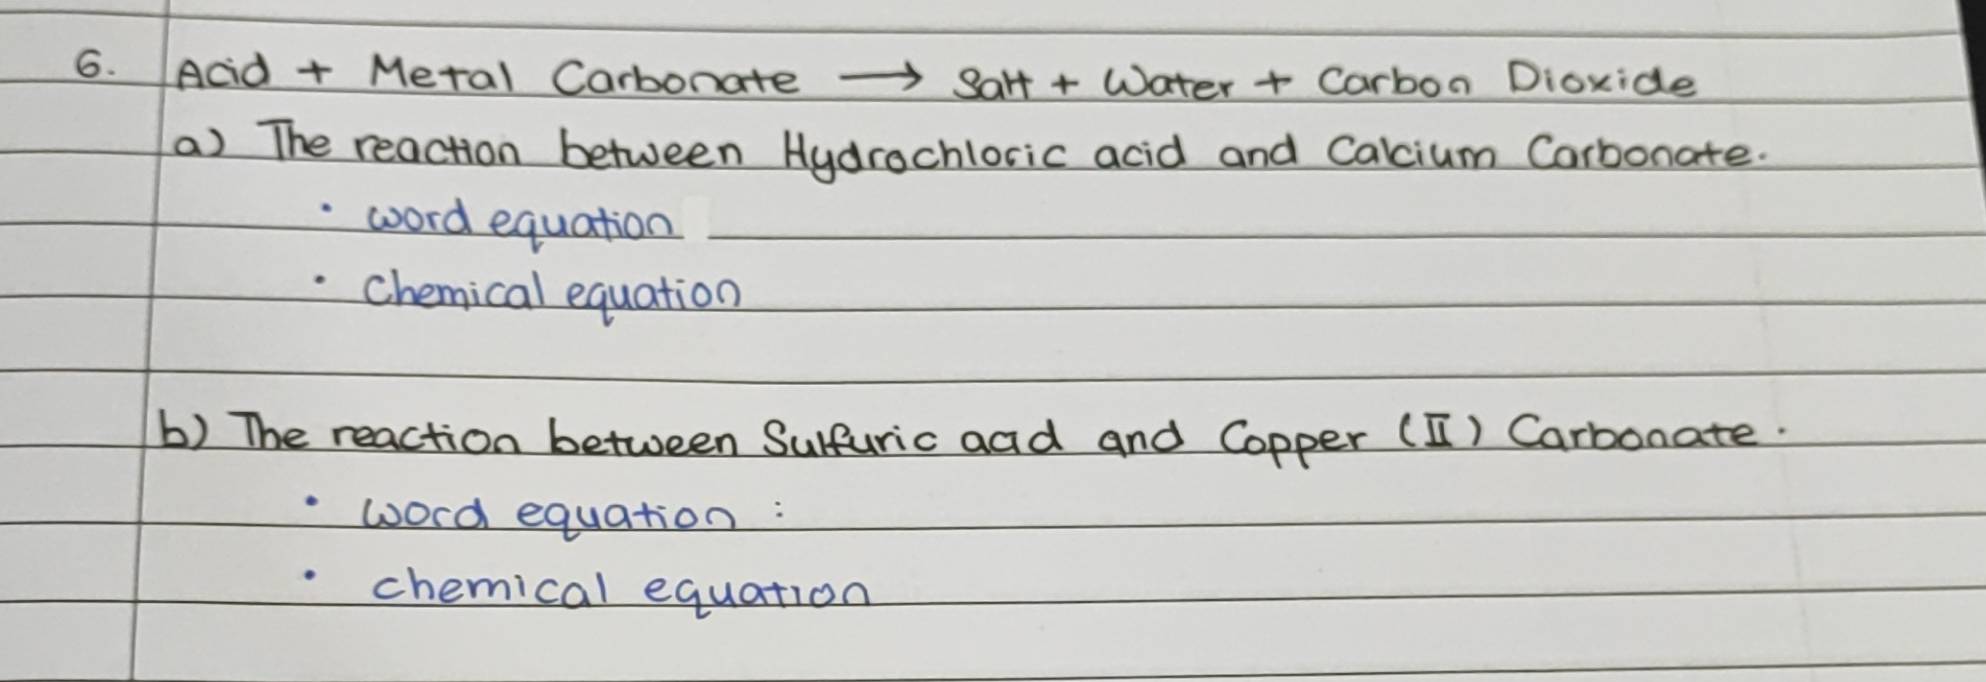 6. Acid + Metal Carbonate → Salt + Water + Carbon Dioxide
a) The reaction between Hydrochloric acid and Calcium Carbonate.
• word equation
• Chemical equation
b) The reaction between Sulfuric acid and Copper (II) Carbonate.
• word equation :
• chemical equation